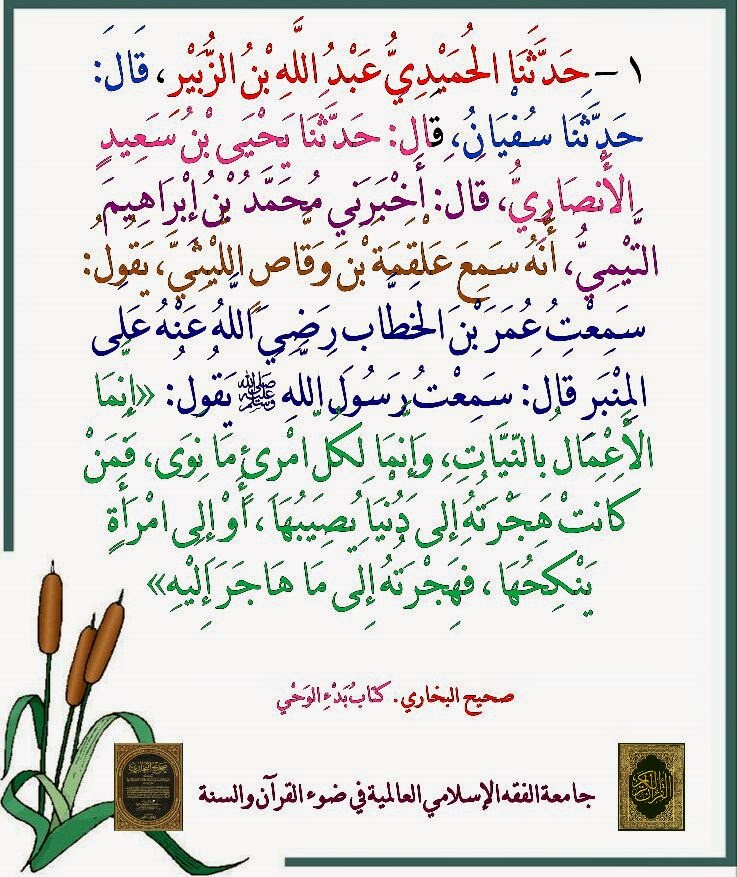 ١ - حَدَّثَنَا الْحُمَيْدِيُّ عَبْدُ اللَّهِ بْنُ الزُّبَيْرِ، قَالَ:
حَدَّثَنَا سُفْيَانُ، قَالَ: حَدَّثَنَا يَحْيَى بْنُ سَعِيدٍ
الْأَنْصَارِيُّ، قَالَ: أَخْبَرَنِي مُحَمَّدُ بْنُ إِبْرَاهِيمَ
التَّيْمِيُّ، أَنَّهُ سَمِعَ عَلْقَمَةَ بْنَ وَقَّاصٍ اللَّيْثِيَّ، يَقُولُ:
سَمِعْتُ عُمَرَ بْنَ الْخَطَّابِ رَضِيَ اللَّهُ عَنْهُ عَلَى
الْمِنْبَرِ قَالَ: سَمِعْتُ رَسُولَ اللَّهِ ﷺ يَقُولُ: «إِنَّمَا
الْأَعْمَالُ بِالنِّيَّاتِ، وَإِنَّمَا لِكُلِّ امْرِئٍ مَا نَوَى، فَمَنْ
كَانَتْ هِجْرَتُهُ إِلَى دُنْيَا يُصِيبُهَا، أَوْ إِلَى امْرَأَةٍ
يَنْكِحُهَا، فَهِجْرَتُهُ إِلَى مَا هَاجَرَ إِلَيْهِ»
صحيح البخاري. كتَابُ بَدْءِ الوَحْيِ
جامعة الفقه الإسلامي العالمية في ضوء القرآن والسنة
القرآن الكريم